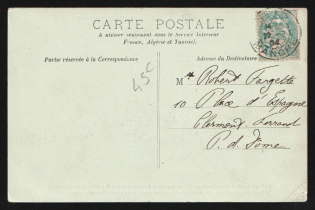 CARTE POSTALE
A utiliser seulement dans le Service Intérieur
France, Algérie et Tunisie.
Partie réservée à la Correspondance
Adresse du Destinataire
45c
Mr Robert Fargette
10 Place d'Espagne
Clermont Ferrand
P. d. Dôme